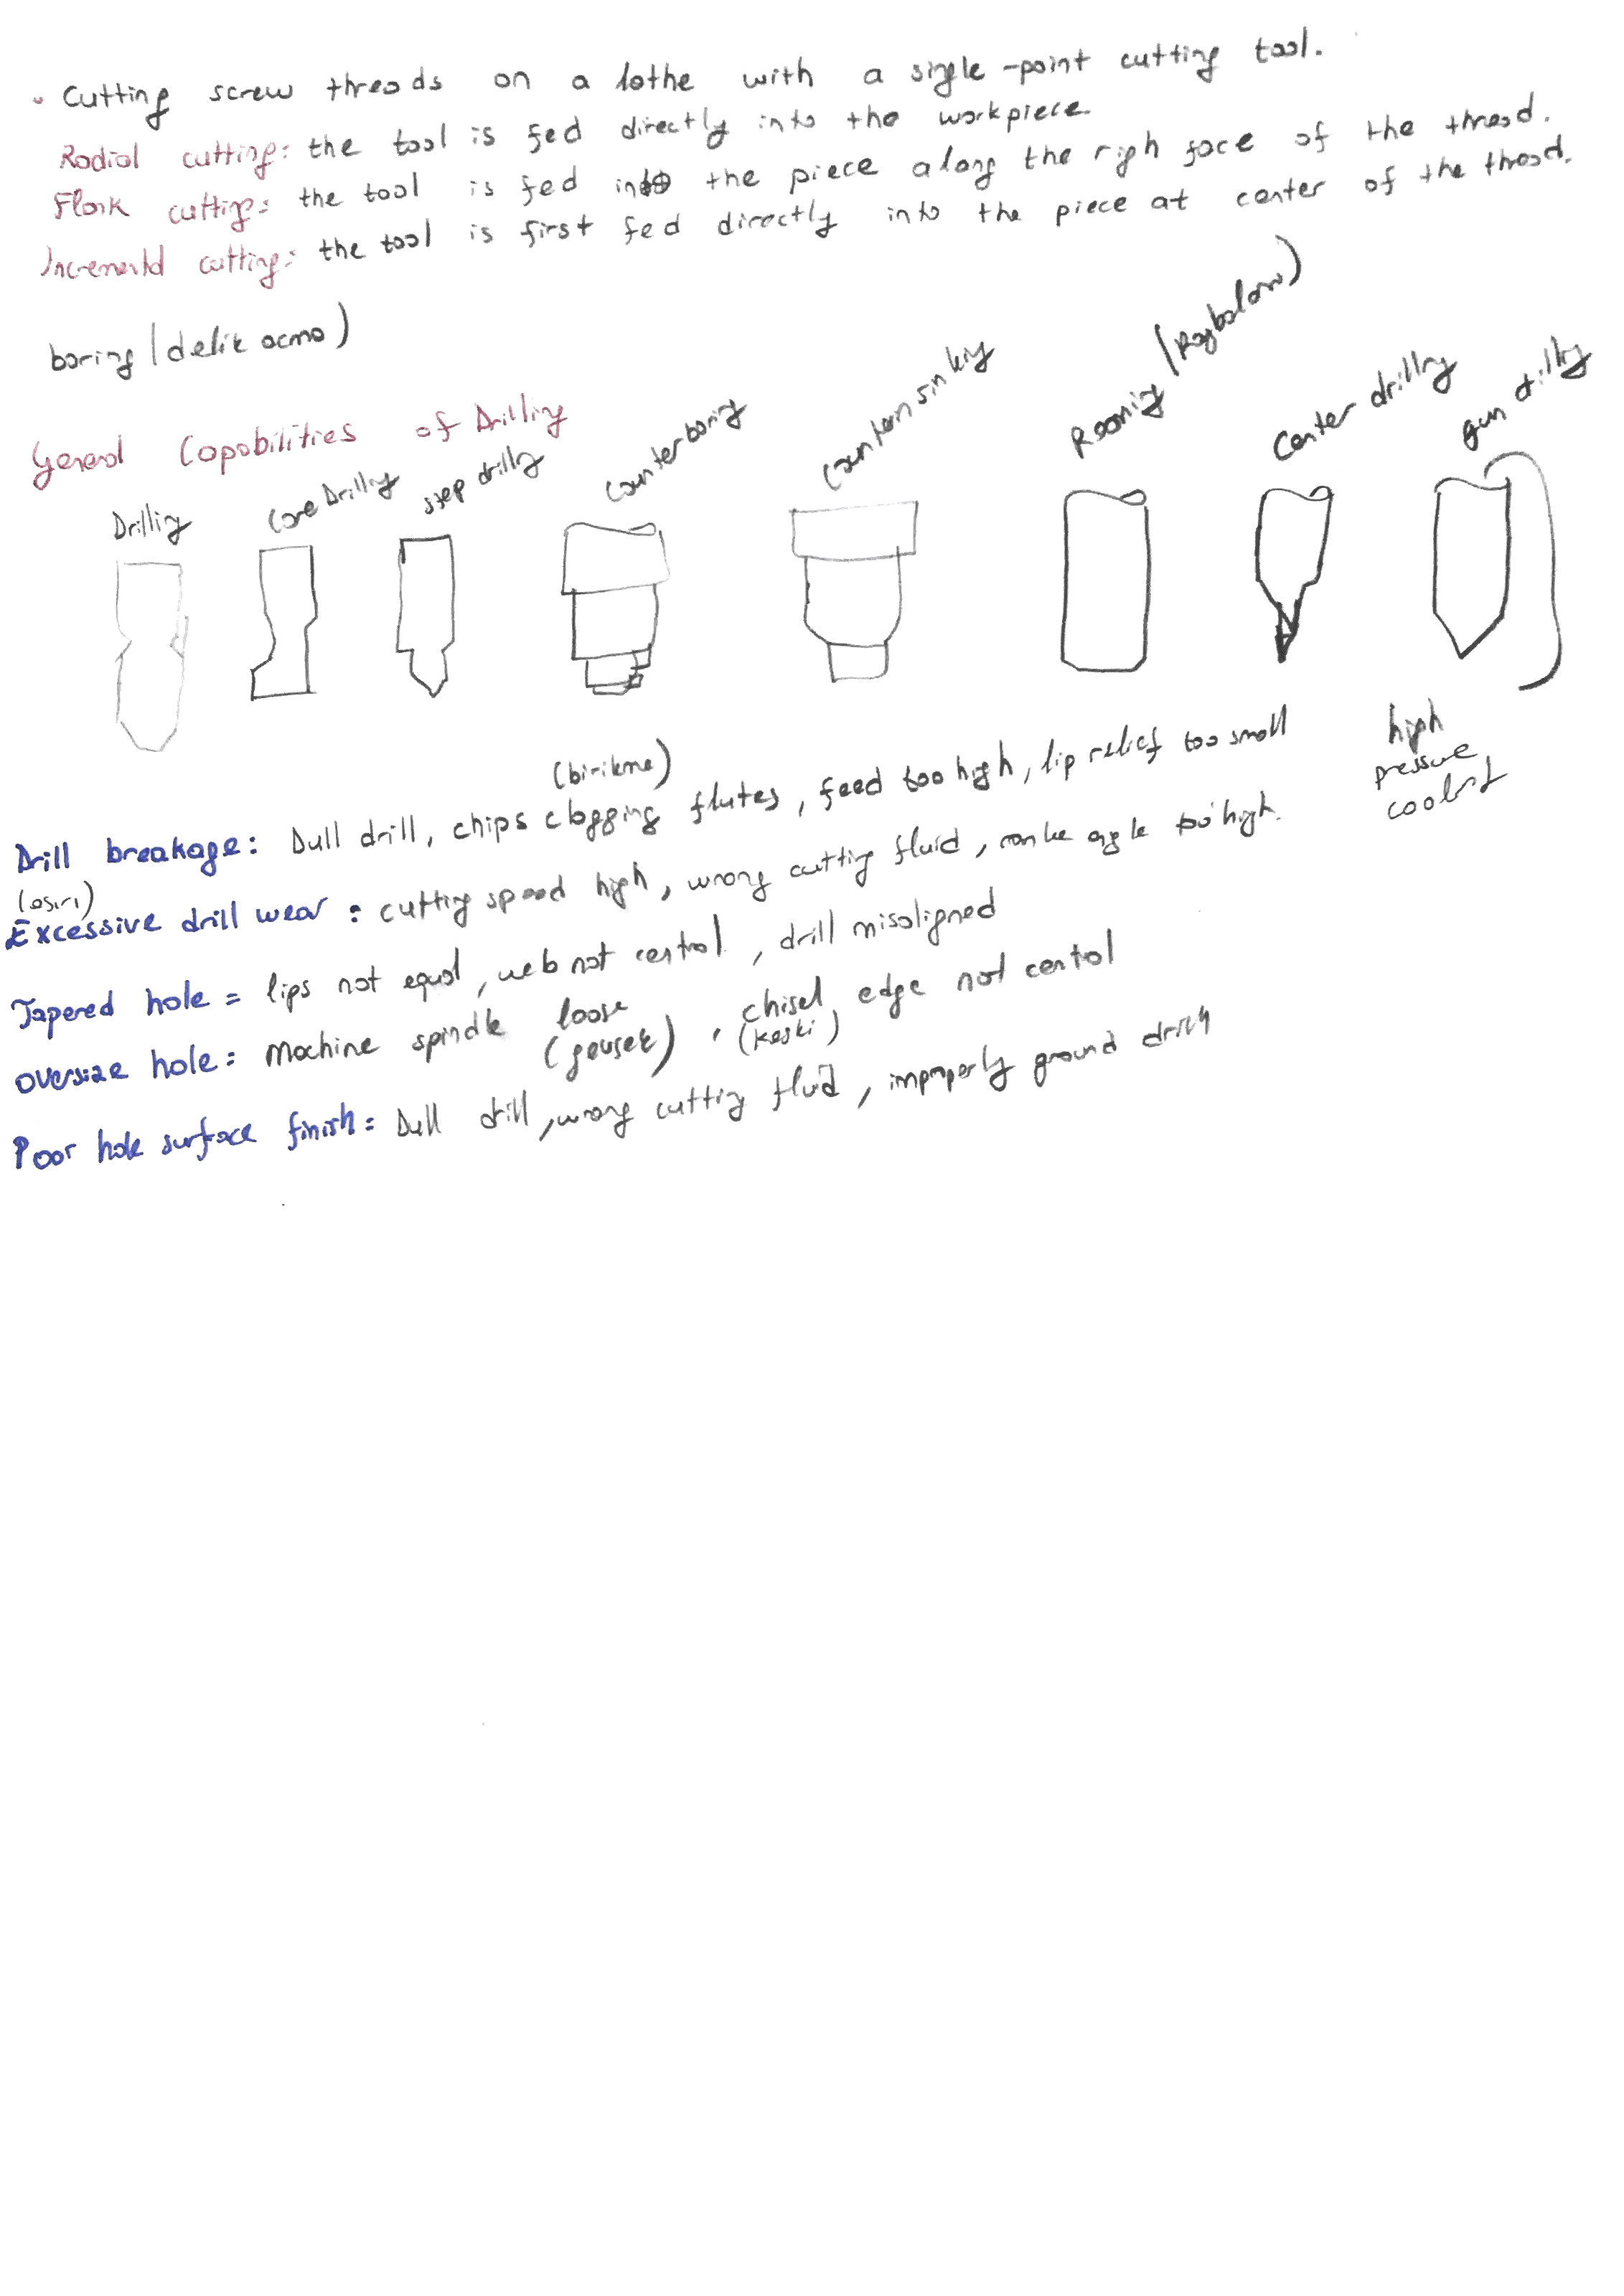 • Cutting screw threads on a lathe with a single-point cutting tool.
Radial cutting: the tool is fed directly into the workpiece.
Flank cutting: the tool is fed into the piece along the righ face of the thread.
Incremental cutting: the tool is first fed directly into the piece at center of the thread.
boring (delik açma)
General Capabilities of Drilling
Drilling
Core Drilling
step drilling
Counterboring
Countersinking
Reaming (Raybalama)
Center drilling
gun drilling
high
pressure
coolant
(birikme)
Drill breakage: Dull drill, chips clogging flutes, feed too high, lip relief too small
(asırı)
Excessive drill wear: cutting speed high, wrong cutting fluid, rake angle too high.
Tapered hole = lips not equal, web not central, drill misaligned
oversize hole: Machine spindle loose, chisel edge not central
(gevsek) (keski)
Poor hole surface finish: Dull drill, wrong cutting fluid, improperly ground drill